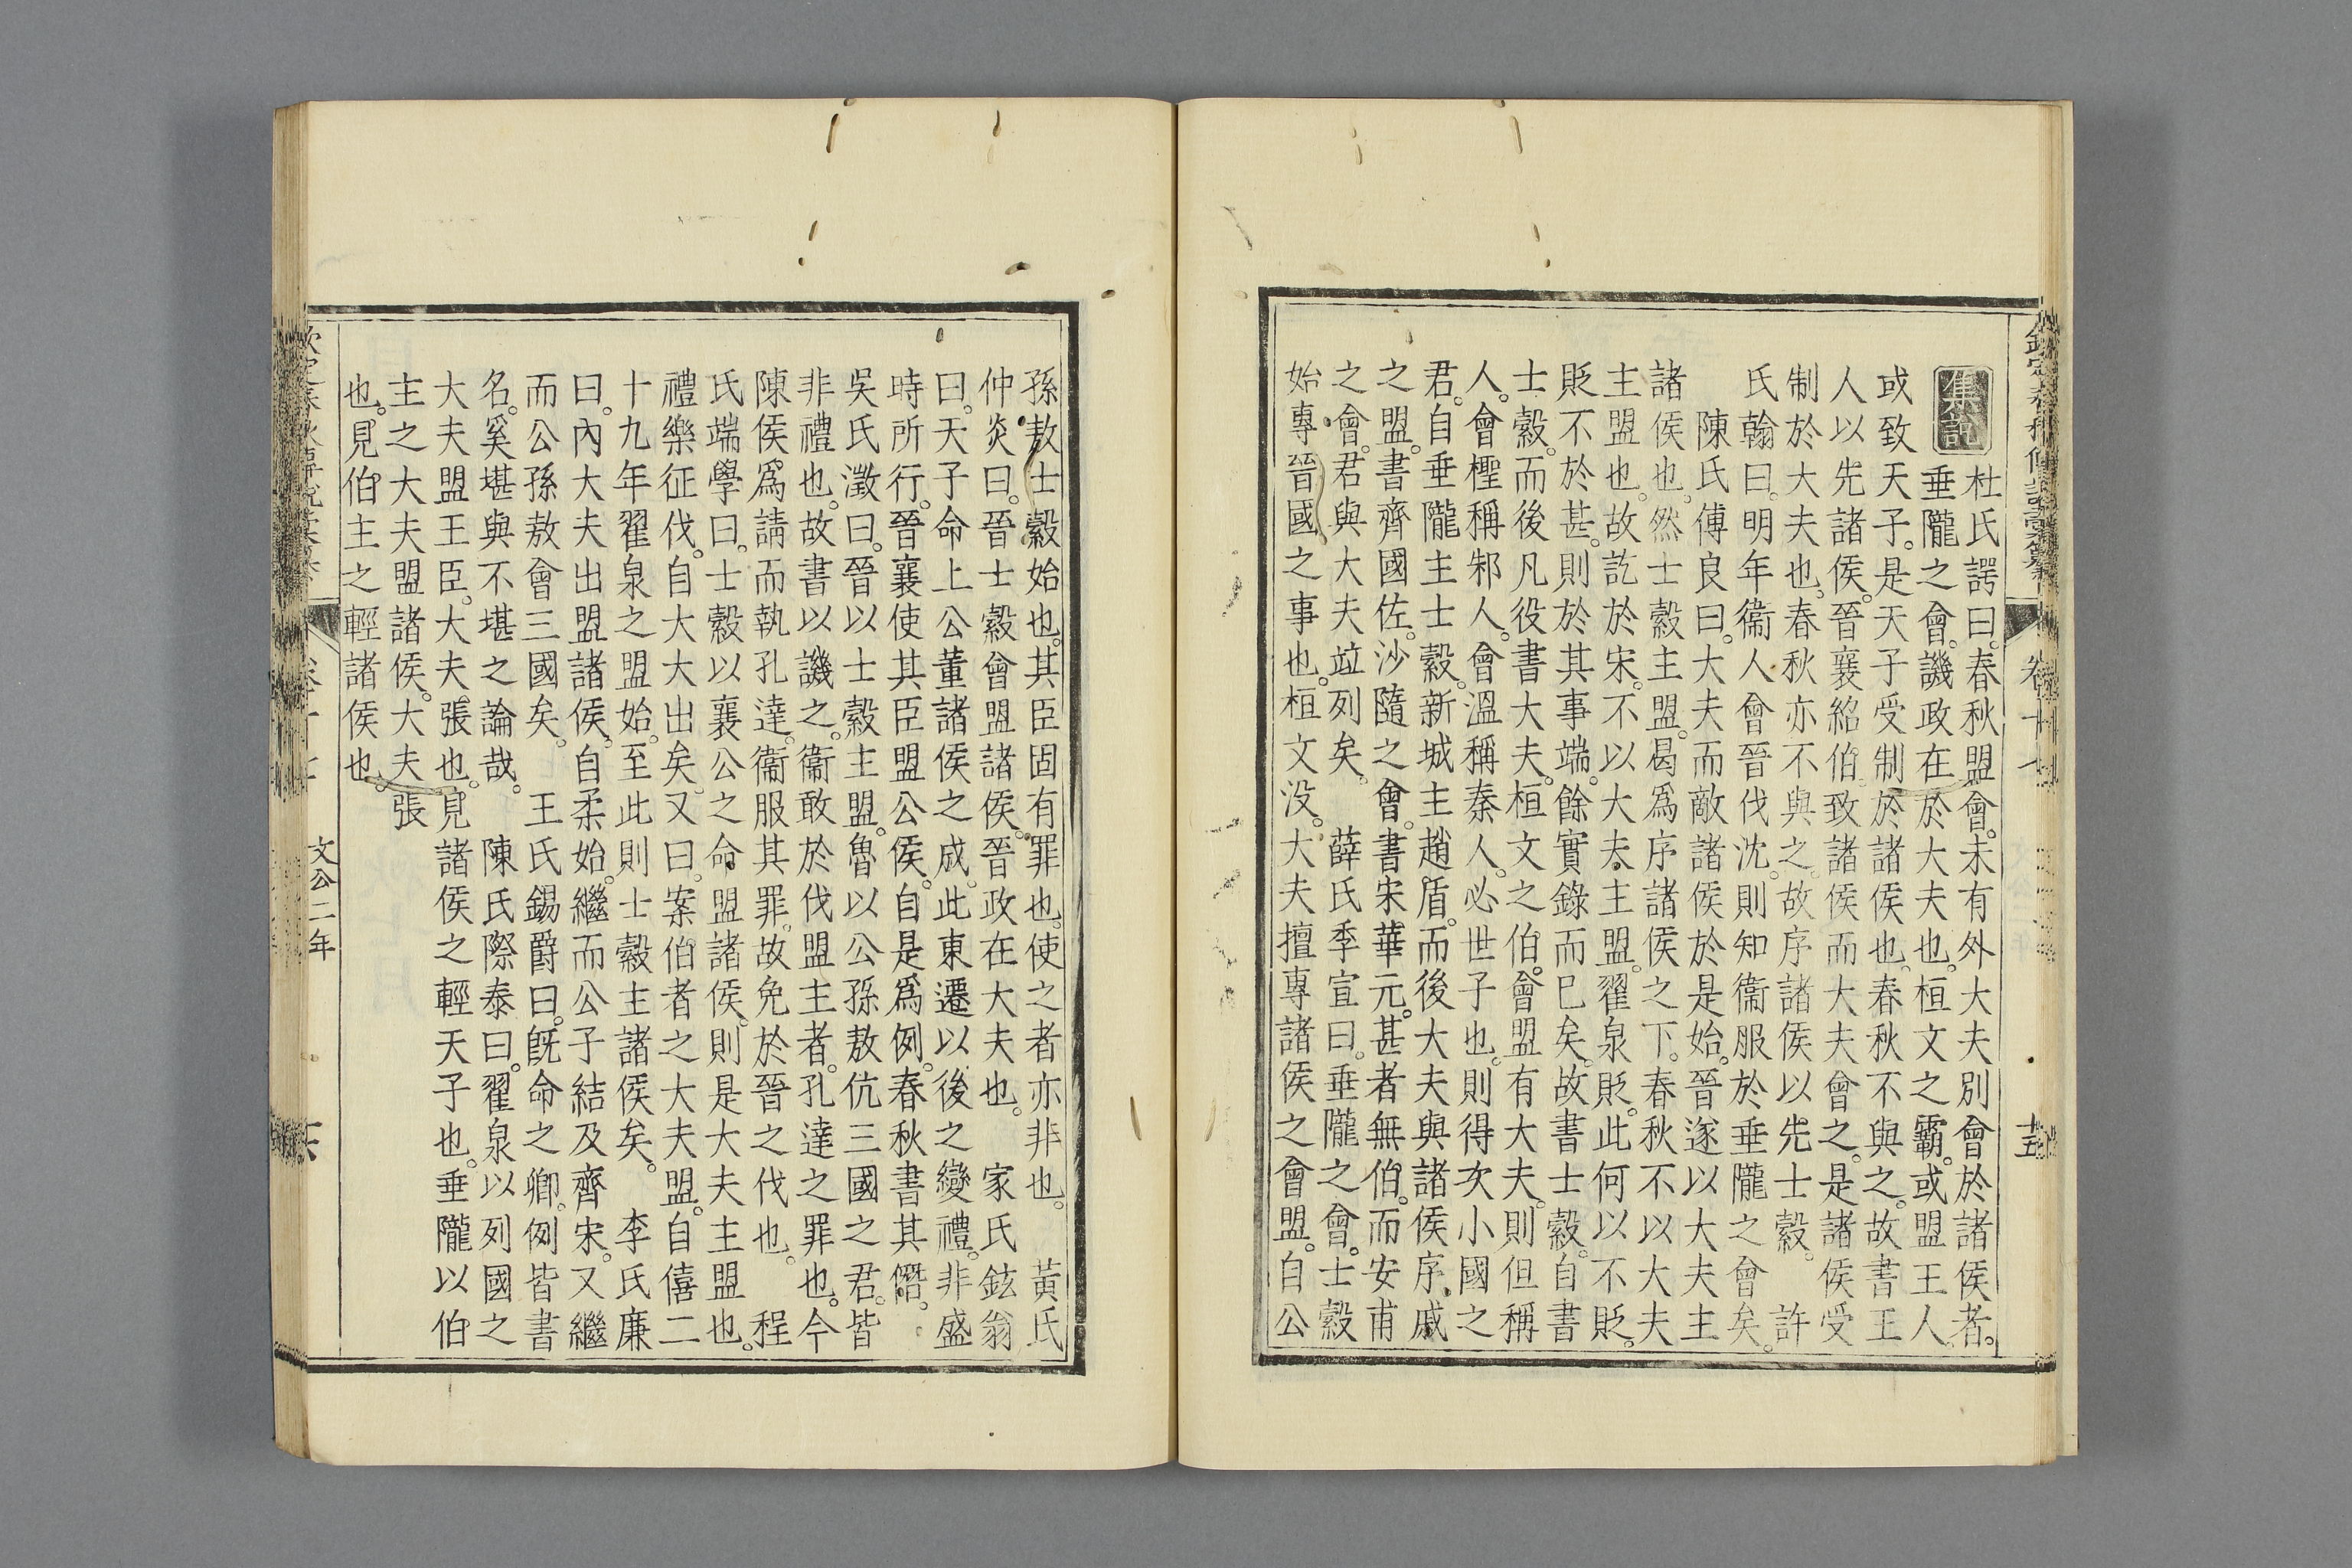 集說
杜氏諤曰。春秋盟會。未有外大夫別會於諸侯者。
垂隴之會。譏政在於大夫也。桓文之霸。或盟王人。
或致天子。是天子受制於諸侯也。春秋不與之。故書王
人以先諸侯。晉襄紹伯。致諸侯而大夫會之。是諸侯受
制於大夫也。春秋亦不與之。故序諸侯以先士縠。 許
氏翰曰。明年衞人會晉伐沈。則知衞服於垂隴之會矣。
陳氏傅良曰。大夫而敵諸侯於是始。晉遂以大夫主
諸侯也。然士縠主盟。曷爲序諸侯之下。春秋不以大夫
主盟也。故訖於宋。不以大夫主盟。翟泉貶。此何以不貶。
貶不於甚。則於其事端。餘實錄而已矣。故書士縠。自書
士縠。而後凡役書大夫。桓文之伯。會盟有大夫。則但稱
人。會檉稱邾人。會溫稱秦人。必世子也。則得次小國之
君。自垂隴主士縠。新城主趙盾。而後大夫與諸侯序。戚
之盟。書齊國佐。沙隨之會。書宋華元。甚者無伯。而安甫
之會。君與大夫竝列矣。 薛氏季宣曰。垂隴之會。士縠
始專晉國之事也。桓文没。大夫擅專諸侯之會盟。自公
卷十七
十五
孫敖士縠始也。其臣固有罪也。使之者亦非也。 黃氏
仲炎曰。晉士縠會盟諸侯。晉政在大夫也。 家氏鉉翁
曰。天子命上公董諸侯之成。此東遷以後之變禮。非盛
時所行。晉襄使其臣盟公侯。自是爲例。春秋書其僭。
吳氏澂曰。晉以士縠主盟。魯以公孫敖伉三國之君。皆
非禮也。故書以譏之。衞敢於伐盟主者。孔達之罪也。今
陳侯爲請而執孔達。衞服其罪。故免於晉之伐也。 程
氏端學曰。士縠以襄公之命盟諸侯。則是大夫主盟也。
禮樂征伐。自大夫出矣。又曰。案伯者之大夫盟。自僖二
十九年翟泉之盟始。至此則士縠主諸侯矣。 李氏廉
曰。內大夫出盟諸侯。自柔始。繼而公子結及齊宋。又繼
而公孫敖會三國矣。 王氏錫爵曰。旣命之卿。例皆書
名。奚堪與不堪之論哉。 陳氏際泰曰。翟泉以列國之
大夫盟王臣。大夫張也。見諸侯之輕天子也。垂隴以伯
主之大夫盟諸侯。大夫張
也。見伯主之輕諸侯也。
文公二年